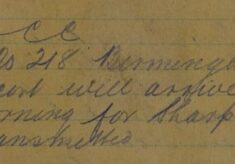 CC
218 Birming
will arrive
rning for Sharp
answered